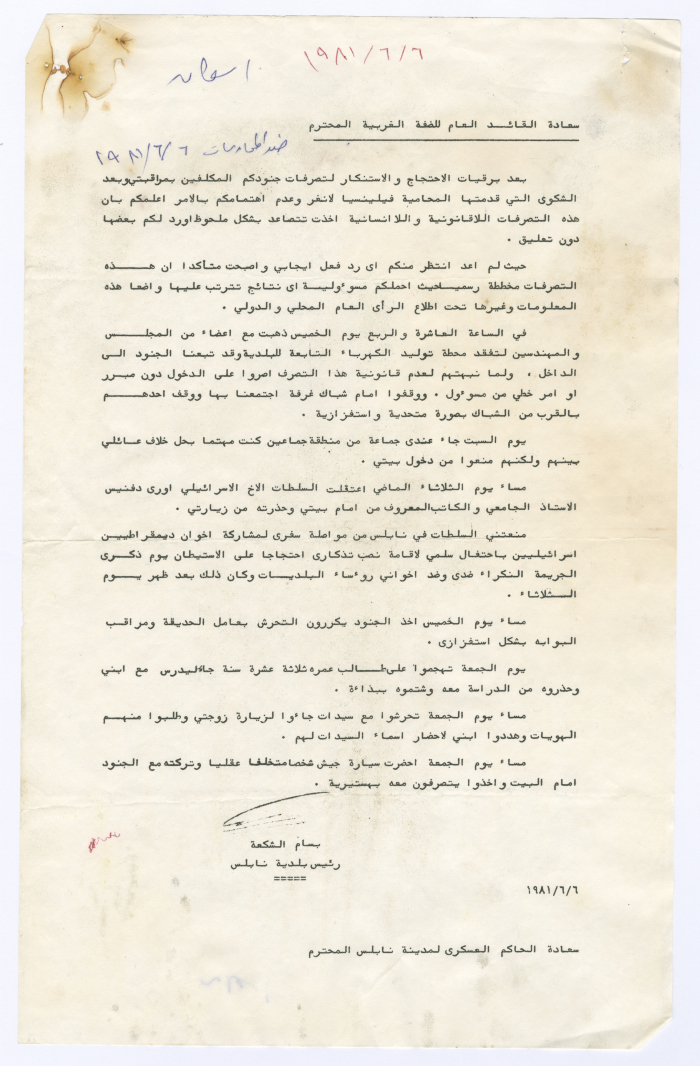 ١٩٨١/٦/٦
سعادة القائـــد العام للضفة الغربية المحترم
١٩٨١/٦/٦
بعد برقيات الاحتجاج والاستنكار لتصرفات جنودكم المكلفين بمراقبتي وبعد
الشكوى التي قدمتها المحامية فيلينسيا لانغر وعدم اهتمامكم بالامر اعلمكم بان
هذه التصرفات اللاقانونية واللا انسانية اخذت تتصاعد بشكل ملحوظ اورد لكم بعضها
دون تعليق .
حيث لم اعد انتظر منكم اى رد فعل ايجابي واصبحت متأكدا ان هـــــذه
التصرفات مخططة رسميا حيث احملكم مسوءولية اى نتائج تترتب عليها واضعا هذه
المعلومات وغيرها تحت اطلاع الرأى العام المحلي والدولي .
في الساعة العاشرة والربع يوم الخميس ذهبت مع اعضاء من المجلـــس
والمهندسين لتفقد محطة توليد الكهرباء التابعة للبلدية وقد تبعنا الجنود الـى
الداخل ، ولما نبهتهم لعدم قانونية هذا التصرف اصروا على الدخول دون مبرر
او امر خطي من مسوءول . ووقفوا امام شباك غرفة اجتمعنا بها ووقف احدهـــم
بالقرب من الشباك بصورة متحدية واستفزازية .
يوم السبت جاء عندى جماعة من منطقة جماعين كنت مهتما بحل خلاف عـائلي
بينهم ولكنهم منعوا من دخول بيتي .
مساء يوم الثلاثاء الماضي اعتقلت السلطات الاخ الاسرائيلي اورى دفنيس
الاستاذ الجامعي والكاتب المعروف من امام بيتي وحذرته من زيارتي .
منعتني السلطات في نابلس من مواصلة سفرى لمشاركة اخوان ديمقراطييـن
اسرائيليين باحتفال سلمي لاقامة نصب تذكارى احتجاجا على الاستيطان يوم ذكـرى
الجريمة النكراء ضدى وضد اخواني روءساء البلديـات وكان ذلك بعد ظهر يـــوم
الثـــلاثاء .
مساء يوم الخميس اخذ الجنود يكررون التحرش بعامل الحديقة ومراقـب
البوابه بشكل استفزازى .
يوم الجمعة تهجموا على طـــالب عمره ثلاثة عشرة سنة جاء ليدرس مع ابني
وحذروه من الدراسة معه وشتموه ببذاءة .
مساء يوم الجمعة تحرشوا مع سيدات جاءوا لزيارة زوجتي وطلبوا منهــم
الهويات وهددوا ابني لاحضار اسماء السيدات لهم .
مساء يوم الجمعة احضرت سيارة جيش شخصا متخلفا عقليا وتركته مع الجنود
امام البيت واخذوا يتصرفون معه بهستيرية .
بسام الشكعة
رئيس بلدية نابلس
=====
١٩٨١/٦/٦
سعادة الحاكم العسكرى لمدينة نابلس المحترم